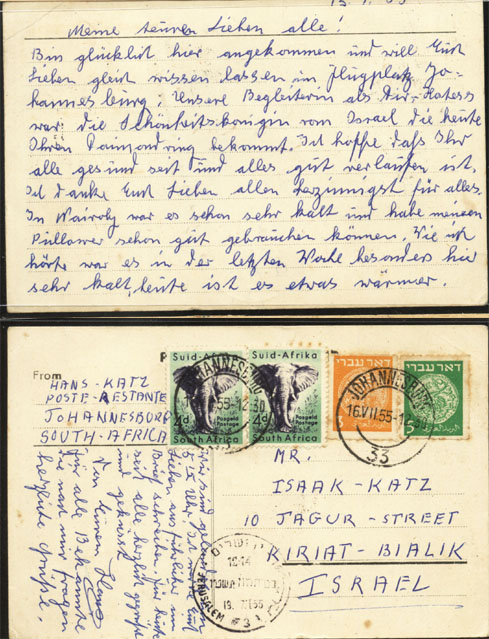 Meine teuren Lieben alle!
Bin glücklich hier angekommen und will Euch
Lieben gleich wissen lassen im Flugplatz Jo-
hannesburg. Unsere Begleiterin als Air-Hostess
war die Schönheitskönigin von Israel die heute
Ihren Daimondring bekommt. Ich hoffe daß Ihr
alle gesund seit und alles gut verlaufen ist.
Ich danke Euch Lieben allen herzinnigst für alles.
In Nairoby war es schon sehr kalt und habe meinen
Pullower schon gut gebrauchen können. Wie ich
hörte war es in der letzten Woche besonders hier
sehr kalt, heute ist es etwas wärmer.
From
HANS-KATZ
POSTE-RESTANTE
JOHANNESBURG
SOUTH-AFRICA
Suid-Afrika
4d
Posgeld
Postage
South Africa
Suid-Afrika
4d
Posgeld
Postage
South Africa
דאר עברי
דאר עברי
5
JOHANNESBURG
JOHANNESBURG
16.VII.55
33
MR.
ISAAK-KATZ
10 JAGUR-STREET
KIRIAT-BIALIK
ISRAEL
wir sind
Lieben
Brief schreiben. Für heute
seit alle herzlich gegrüßt
und geküsst
von Eurem Hans
Für alle Bekannte
die nach mir fragen
herzliche Grüße.
ירושלים
JERUSALEM